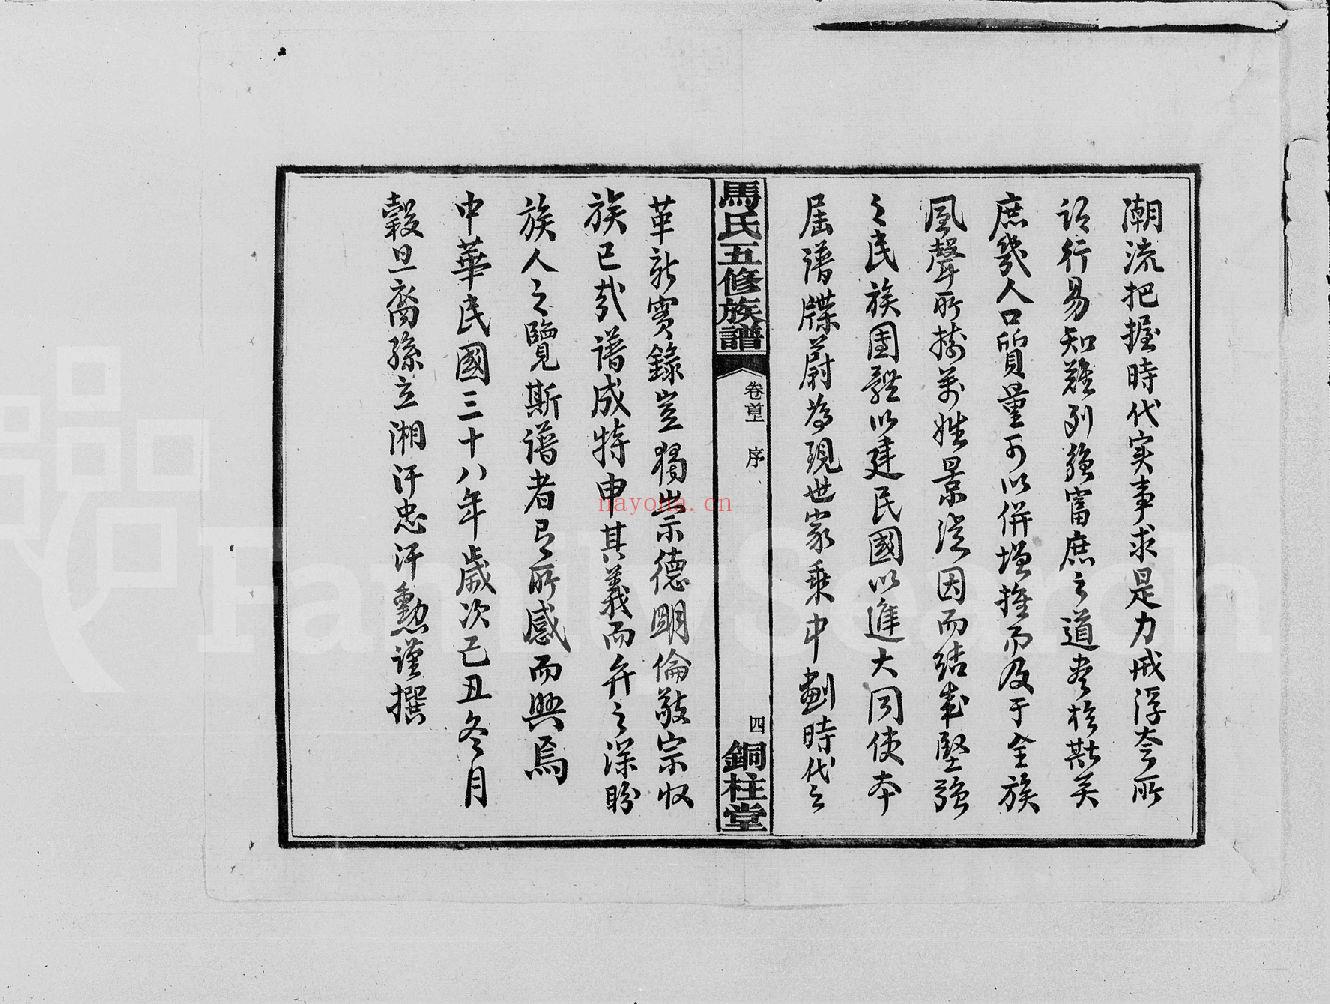 潮流把握時代实事求是力戒浮夸所
謂行易知難列強富庶之道尽於斯矣
庶幾人口質量可以併增推而及于全族
風聲所播萬姓景從因而結成堅強
之民族團體以建民國以進大同使本
屆譜牒蔚為現世家乘中劃時代之
馬氏五修族譜
卷首上 序
四
銅柱堂
革新實錄豈獨崇德明倫敬宗收
族已哉譜成特申其義而弁之深盼
族人之覽斯譜者有所感而興焉
中華民國三十八年歲次己丑冬月
穀旦裔孫立湘汗忠汗勳謹撰
nayona.cn
FamilySearch